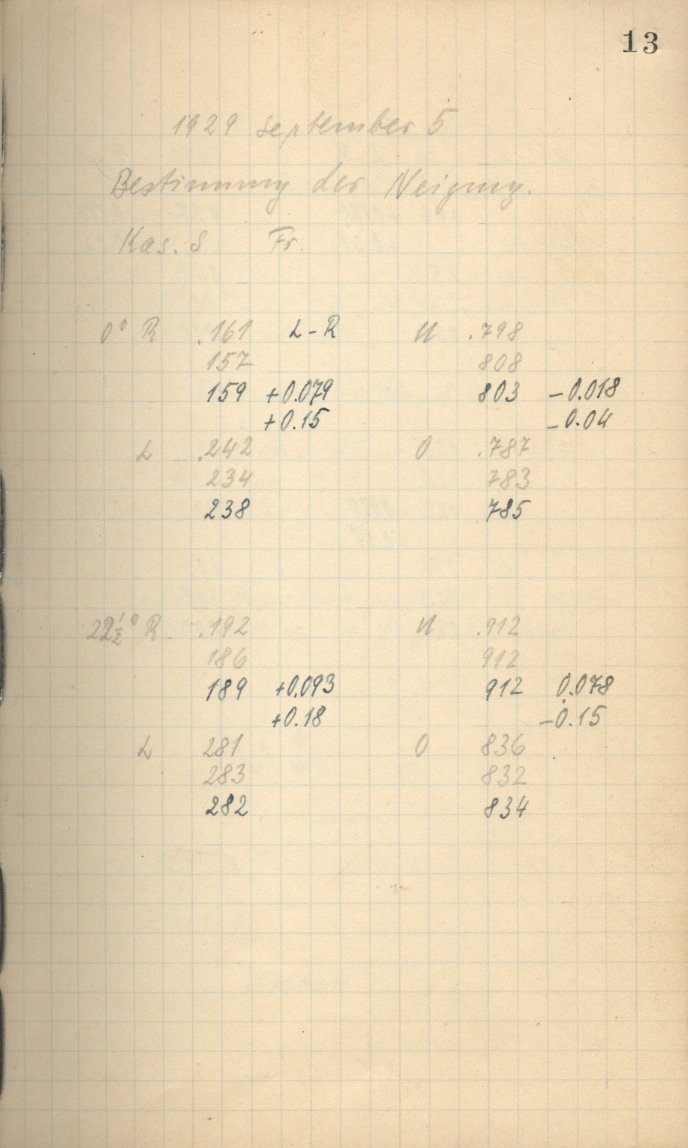 13
1929 September 5
Bestimmung der Neigung.
Kas. S Fr.
0° R .161 L-R U .798
157 808
159 +0.079 803 -0.018
+0.15 -0.04
L .242 O .787
234 783
238 785
22½° R .192 U .912
186 912
189 +0.093 912 0.078
+0.18 -0.15
L 281 O 836
283 832
282 834